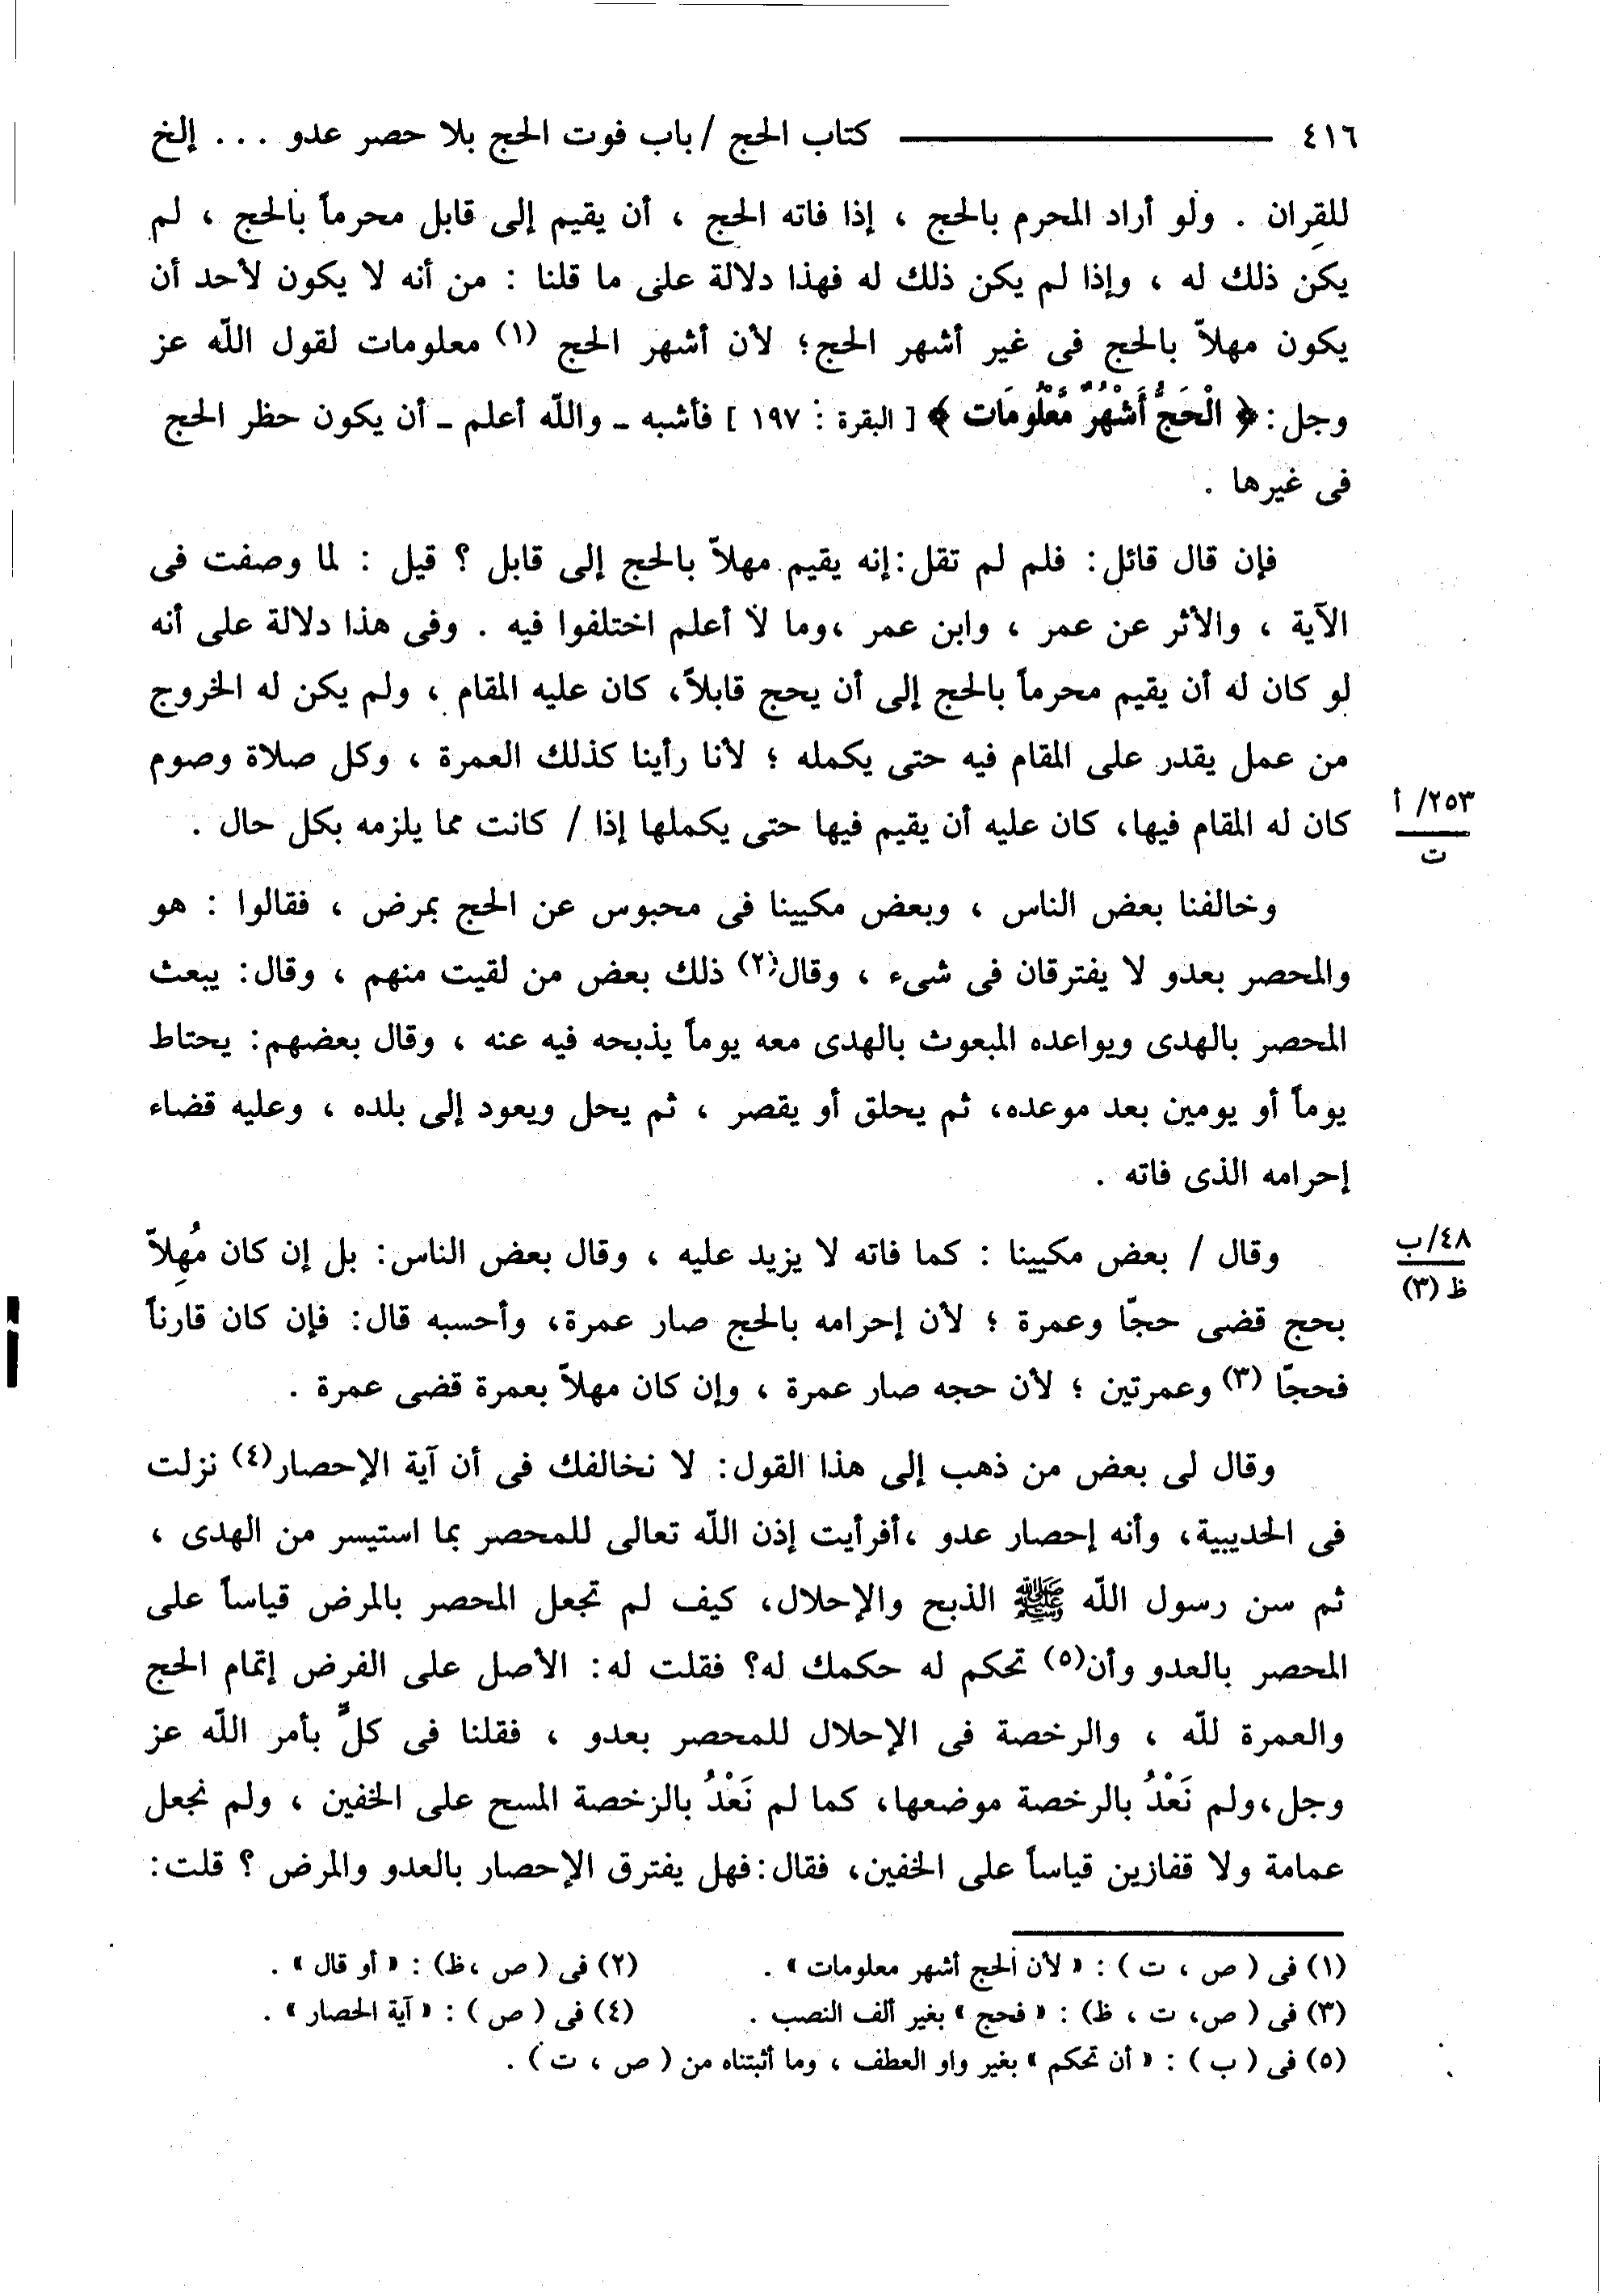 ٤١٦ ــــــــــــــــ كتاب الحج / باب فوت الحج بلا حصر عدو . . . إلخ
للقِران . ولو أراد المحرم بالحج ، إذا فاته الحج ، أن يقيم إلى قابل محرماً بالحج ، لم
يكن ذلك له ، وإذا لم يكن ذلك له فهذا دلالة على ما قلنا : من أنه لا يكون لأحد أن
يكون مهلاّ بالحج فى غير أشهر الحج؛ لأن أشهر الحج (١) معلومات لقول اللّه عز
وجل: ﴿ الْحَجُّ أَشْهُرٌ مَّعْلُومَات ﴾ [ البقرة : ١٩٧ ] فأشبه ــ واللّه أعلم ــ أن يكون حظر الحج
فى غيرها .
فإن قال قائل: فلم لم تقل:إنه يقيم مهلاّ بالحج إلى قابل ؟ قيل : لما وصفت فى
الآية ، والأثر عن عمر ، وابن عمر ،وما لا أعلم اختلفوا فيه . وفى هذا دلالة على أنه
لو كان له أن يقيم محرماً بالحج إلى أن يحج قابلاً، كان عليه المقام ، ولم يكن له الخروج
من عمل يقدر على المقام فيه حتى يكمله ؛ لأنا رأينا كذلك العمرة ، وكل صلاة وصوم
كان له المقام فيها، كان عليه أن يقيم فيها حتى يكملها إذا / كانت مما يلزمه بكل حال .
٢٥٣/ أ
ت
وخالفنا بعض الناس ، وبعض مكيينا فى محبوس عن الحج بمرض ، فقالوا : هو
والمحصر بعدو لا يفترقان فى شىء ، وقال(٢) ذلك بعض من لقيت منهم ، وقال: يبعث
المحصر بالهدى ويواعده المبعوث بالهدى معه يوماً يذبحه فيه عنه ، وقال بعضهم: يحتاط
يوماً أو يومين بعد موعده، ثم يحلق أو يقصر ، ثم يحل ويعود إلى بلده ، وعليه قضاء
إحرامه الذى فاته .
وقال / بعض مكيينا : كما فاته لا يزيد عليه ، وقال بعض الناس: بل إن كان مُهِلاّ
٤٨/ب
ظ (٣)
بحج قضى حجّا وعمرة ؛ لأن إحرامه بالحج صار عمرة، وأحسبه قال: فإن كان قارناً
فحجّا (٣) وعمرتين ؛ لأن حجه صار عمرة ، وإن كان مهلاّ بعمرة قضى عمرة .
وقال لى بعض من ذهب إلى هذا القول: لا نخالفك فى أن آية الإحصار(٤) نزلت
فى الحديبية، وأنه إحصار عدو ،أفرأيت إذن اللّه تعالى للمحصر بما استيسر من الهدى ،
ثم سن رسول اللّه ﷺ الذبح والإحلال، كيف لم تجعل المحصر بالمرض قياساً على
المحصر بالعدو وأن(٥) تحكم له حكمك له؟ فقلت له: الأصل على الفرض إتمام الحج
والعمرة للّه ، والرخصة فى الإحلال للمحصر بعدو ، فقلنا فى كلٍّ بأمر اللّه عز
وجل،ولم نَعْدُ بالرخصة موضعها، كما لم نَعْدُ بالرخصة المسح على الخفين ، ولم نجعل
عمامة ولا قفازين قياساً على الخفين، فقال:فهل يفترق الإحصار بالعدو والمرض ؟ قلت:
(١) فى ( ص ، ت ) : « لأن الحج أشهر معلومات » .     (٢) فى ( ص ،ظ) : « أو قال » .
(٣) فى ( ص، ت ، ظ) : « فحج » بغير ألف النصب .     (٤) فى ( ص ) : « آية الحصار » .
(٥) فى ( ب ) : « أن تحكم » بغير واو العطف ، وما أثبتناه من ( ص ، ت ) .